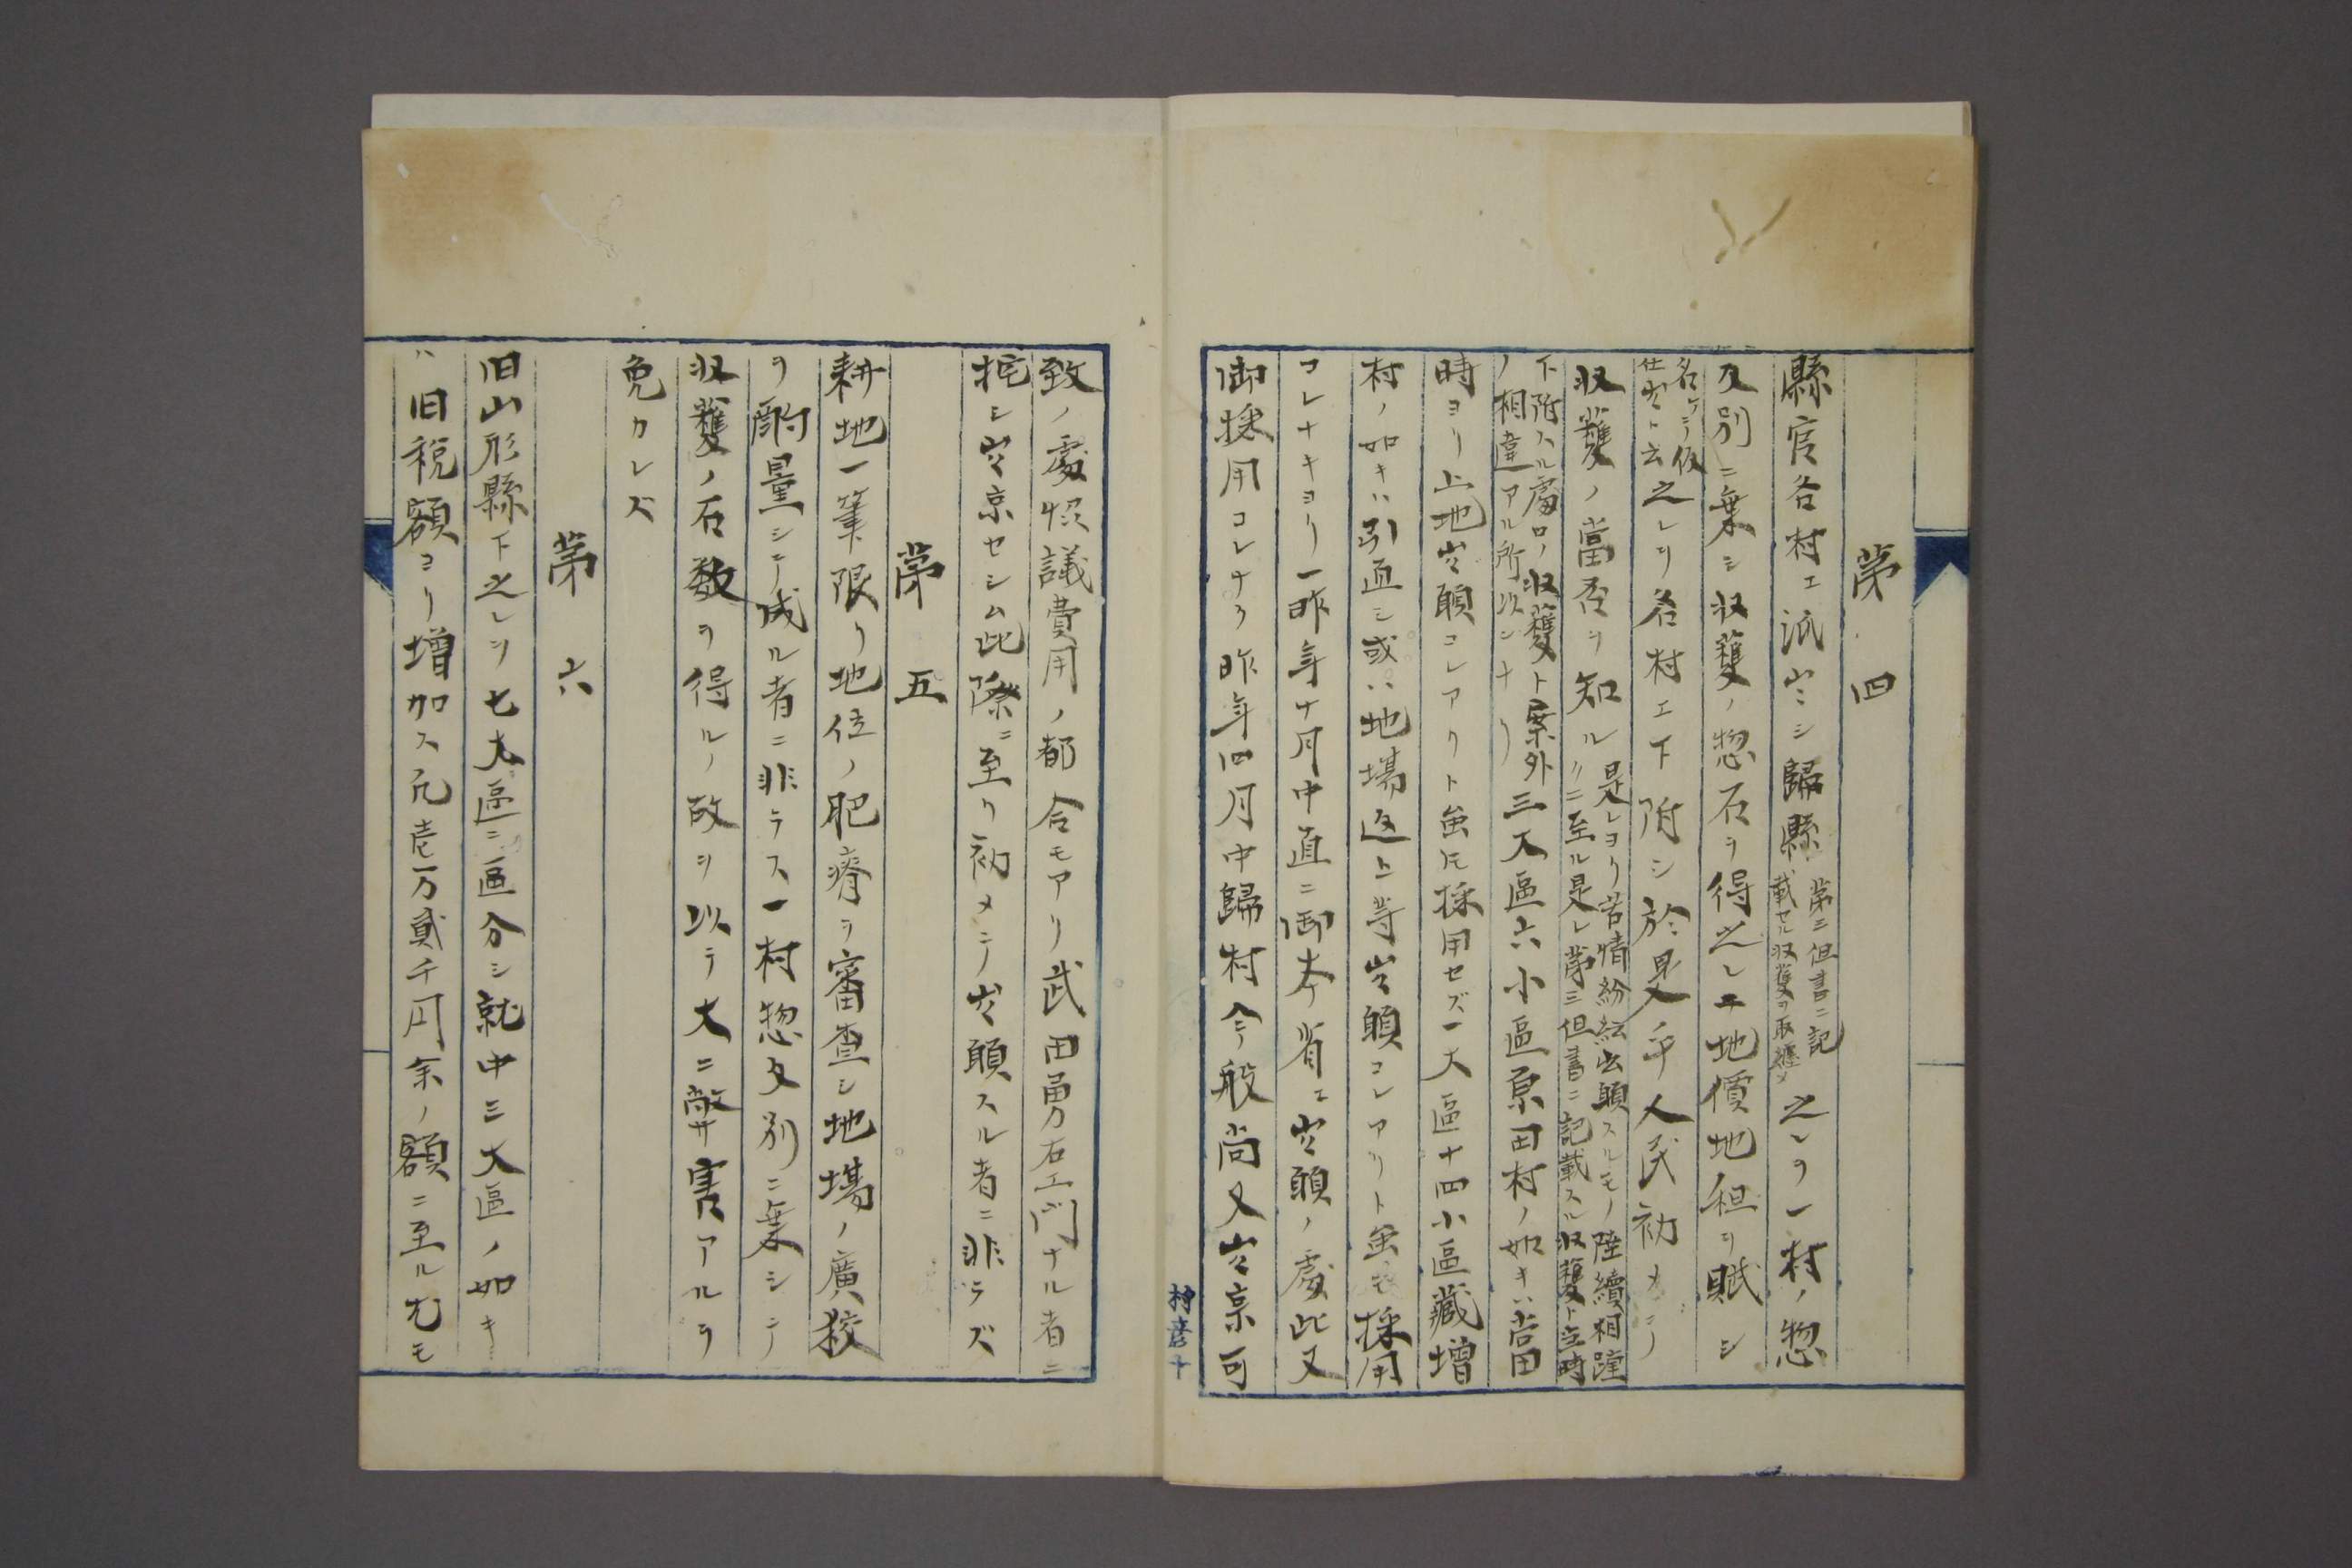 第四
縣官各村エ派出シ歸縣 第三但書ニ記載セル収獲ヲ取纏メ 之レヲ一村ノ惣
反別ニ乗シ収獲ノ惣石ヲ得之レエ地價地租ヲ賦シ
名ケテ仮仕出ト云 之レヲ各村エ下附シ於是乎人民初メテ
収獲ノ當否ヲ知ル 是レヨリ苦情紛紜出願スルモノ陸續相踵クニ至ル是レ第三但書ニ記載スル収獲ト当時
下附スル處ロノ収獲ト案外ノ相違アル所以ンナリ 三大區六小區原田村ノ如キハ當
時ヨリ上地出願コレアリト虽𪜈採用セズ一大區十四小區藏増
村ノ如キハ引直シ或ハ地場返上等出願コレアリト虽𪜈採用
コレナキヨリ一昨年十月中直ニ御本省エ出願ノ處此又
御採用コレナク昨年四月中歸村今般尚又出京可
致ノ處恊議費用ノ都合モアリ武田勇右エ門ナル者ニ
托シ出京セシム此際ニ至リ初メテ出願スル者ニ非ラズ
第五
耕地一筆限リ地位ノ肥瘠ヲ審査シ地場ノ廣狹
ヲ酌量シテ成ル者ニ非ラス一村惣反別ニ乗シテ
収獲ノ石数ヲ得ルノ故ヲ以テ大ニ弊害アルヲ
免カレズ
第六
旧山形縣下之レヲ七大區ニ區分シ就中三大區ノ如キ
ハ旧税額ヨリ増加ス凡壱万貳千円余ノ額ニ至ル尤モ